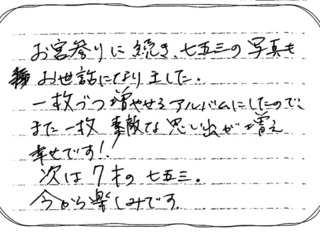 お宮参りに続き、七五三の写真も
お世話になりました。
一枚づつ増やせるアルバムにしたので、
また一枚 素敵な思い出が増え
幸せです!!
次は7才の七五三。
今から楽しみです。